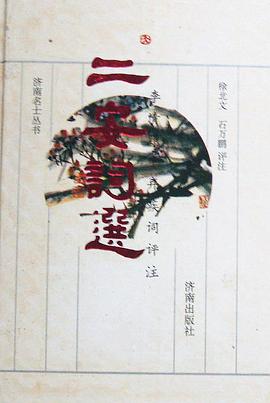 二安詞選
徐北文 石万鹏 评注
李清 弃疾词评注
济南名士丛书
济南出版社